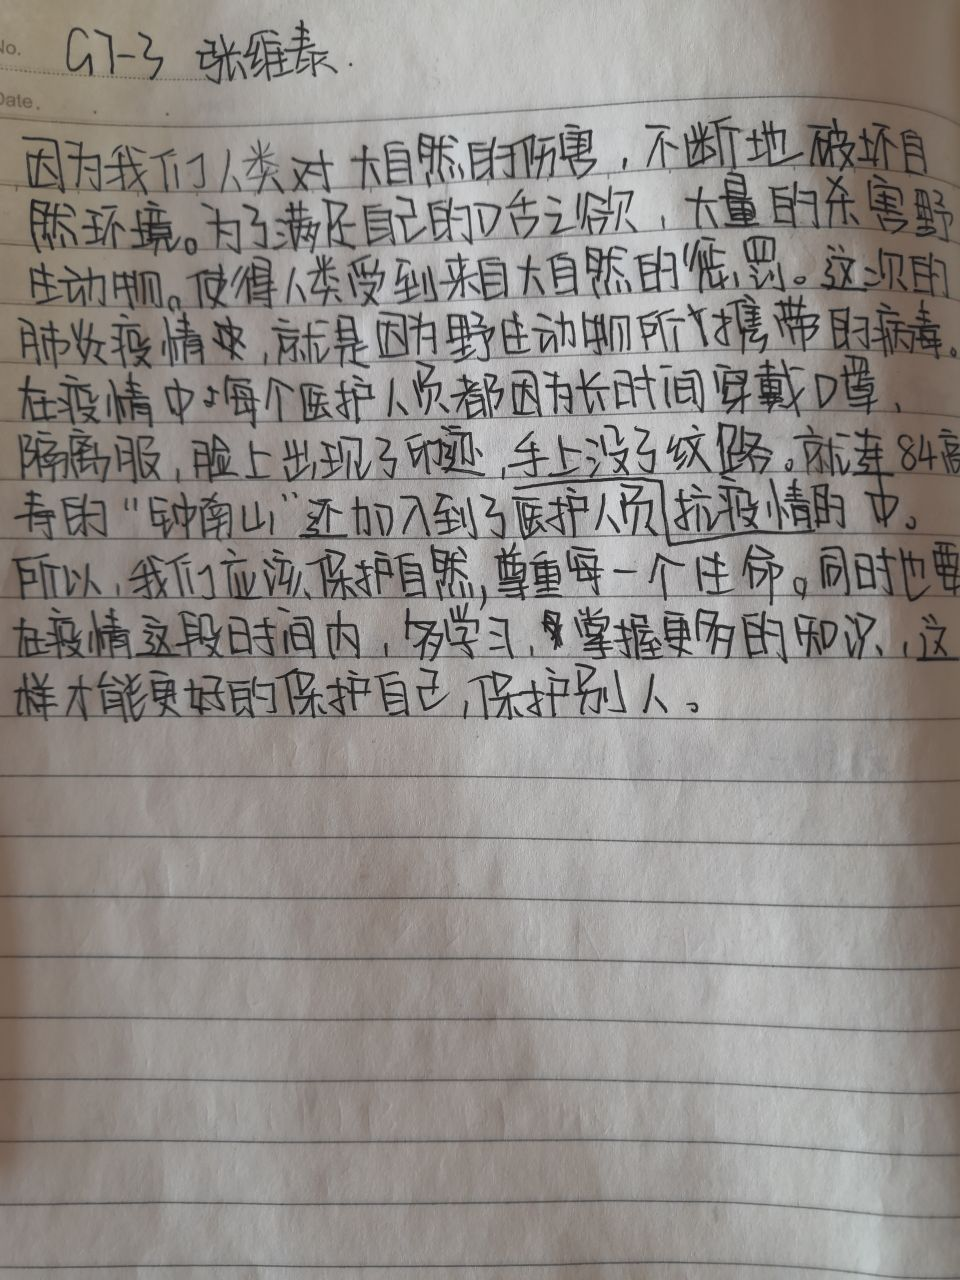 No. G7-3 张维泰.
Date.
因为我们人类对大自然的伤害，不断地破坏自
然环境。为了满足自己的口舌之欲，大量的杀害野
生动物。使得人类受到来自大自然的惩罚。这次的
肺炎疫情中，就是因为野生动物所携带的病毒。
在疫情中每个医护人员都因为长时间穿戴口罩，
隔离服，脸上出现了印迹，手上没了纹路。就连84高
寿的“钟南山”还加入到了医护人员抗疫情的中。
所以，我们应该保护自然，尊重每一个生命。同时也要
在疫情这段时间内，多学习，掌握更多的知识，这
样才能更好的保护自己，保护别人。